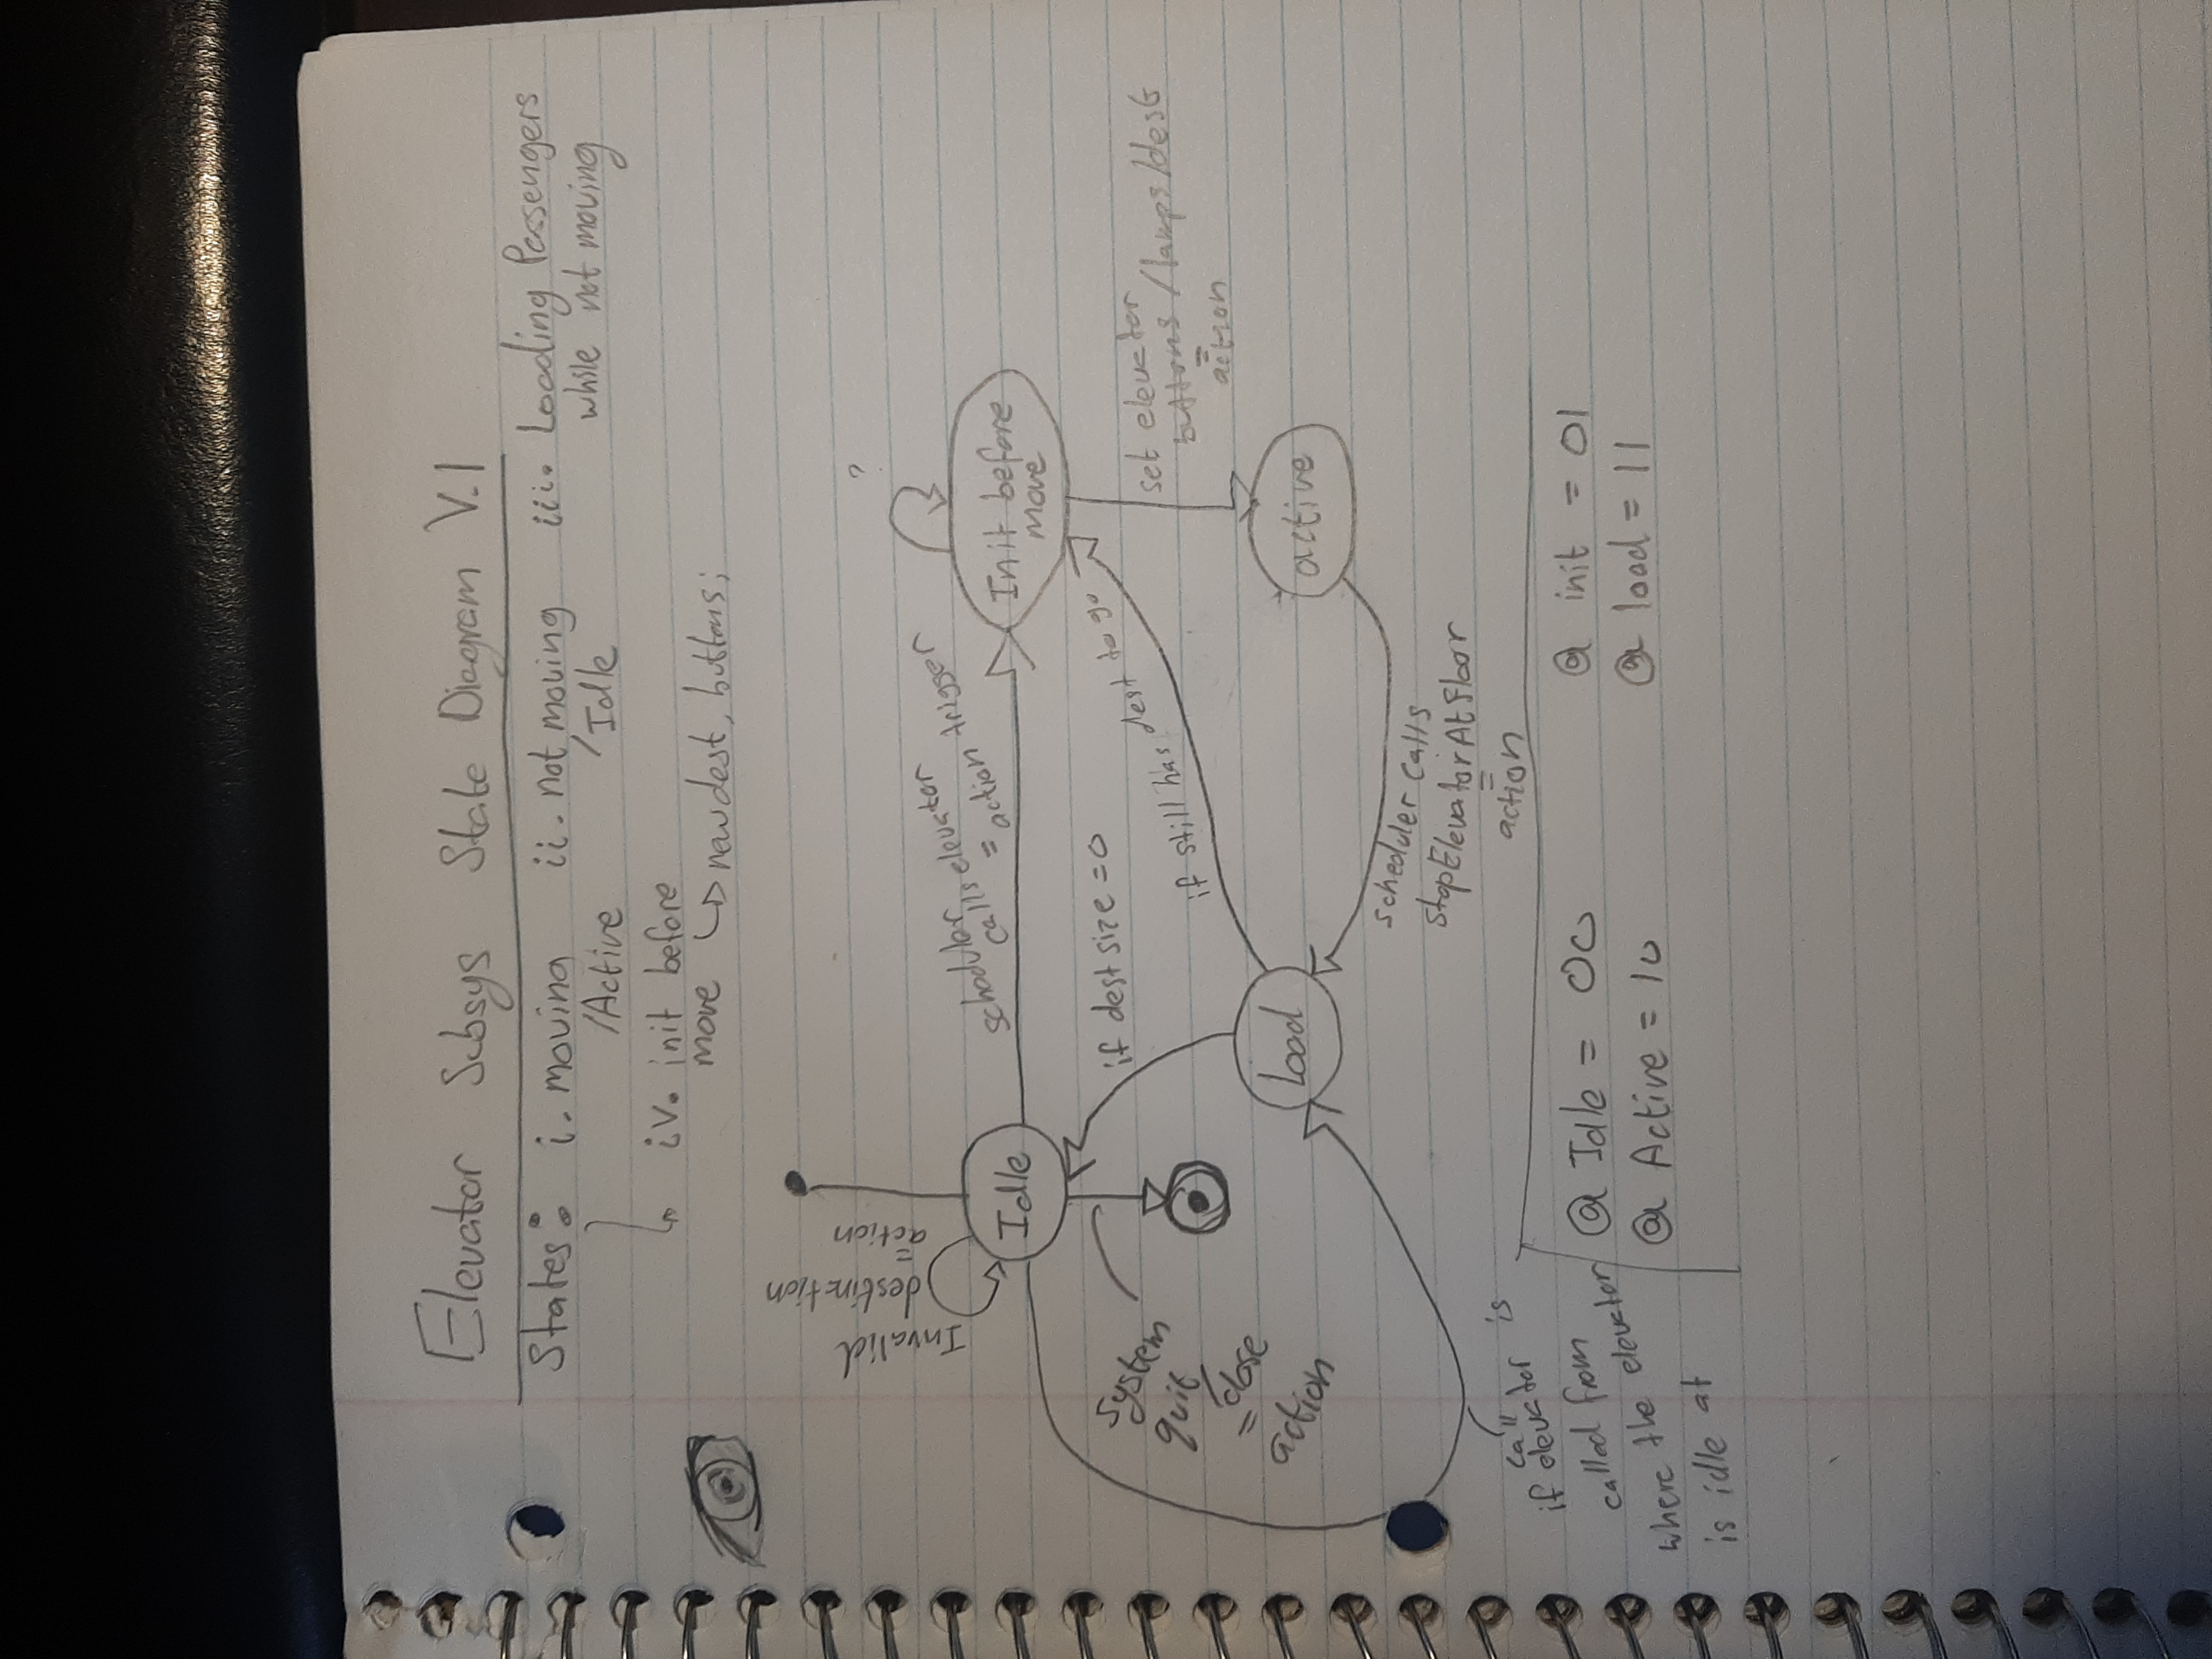 Elevator Subsys State Diagram V.1
States: i. moving ii. not moving iii. Loading Passengers
/Active /Idle while not moving
iv. init before
move ↳ newdest, buttons;
Invalid
destination
=
action
?
scheduler
calls elevator
= action trigger
Idle
Init before
move
System
quit
/close
=
action
if dest size = 0
if still has dest to go
set elevator
buttons /lamps/dest
=
action
load
active
scheduler calls
stopElevatorAtFloor
=
action
call
if elevator is
called from
where the elevator
is idle at
@ Idle = 00 @ init = 01
@ Active = 10 @ load = 11